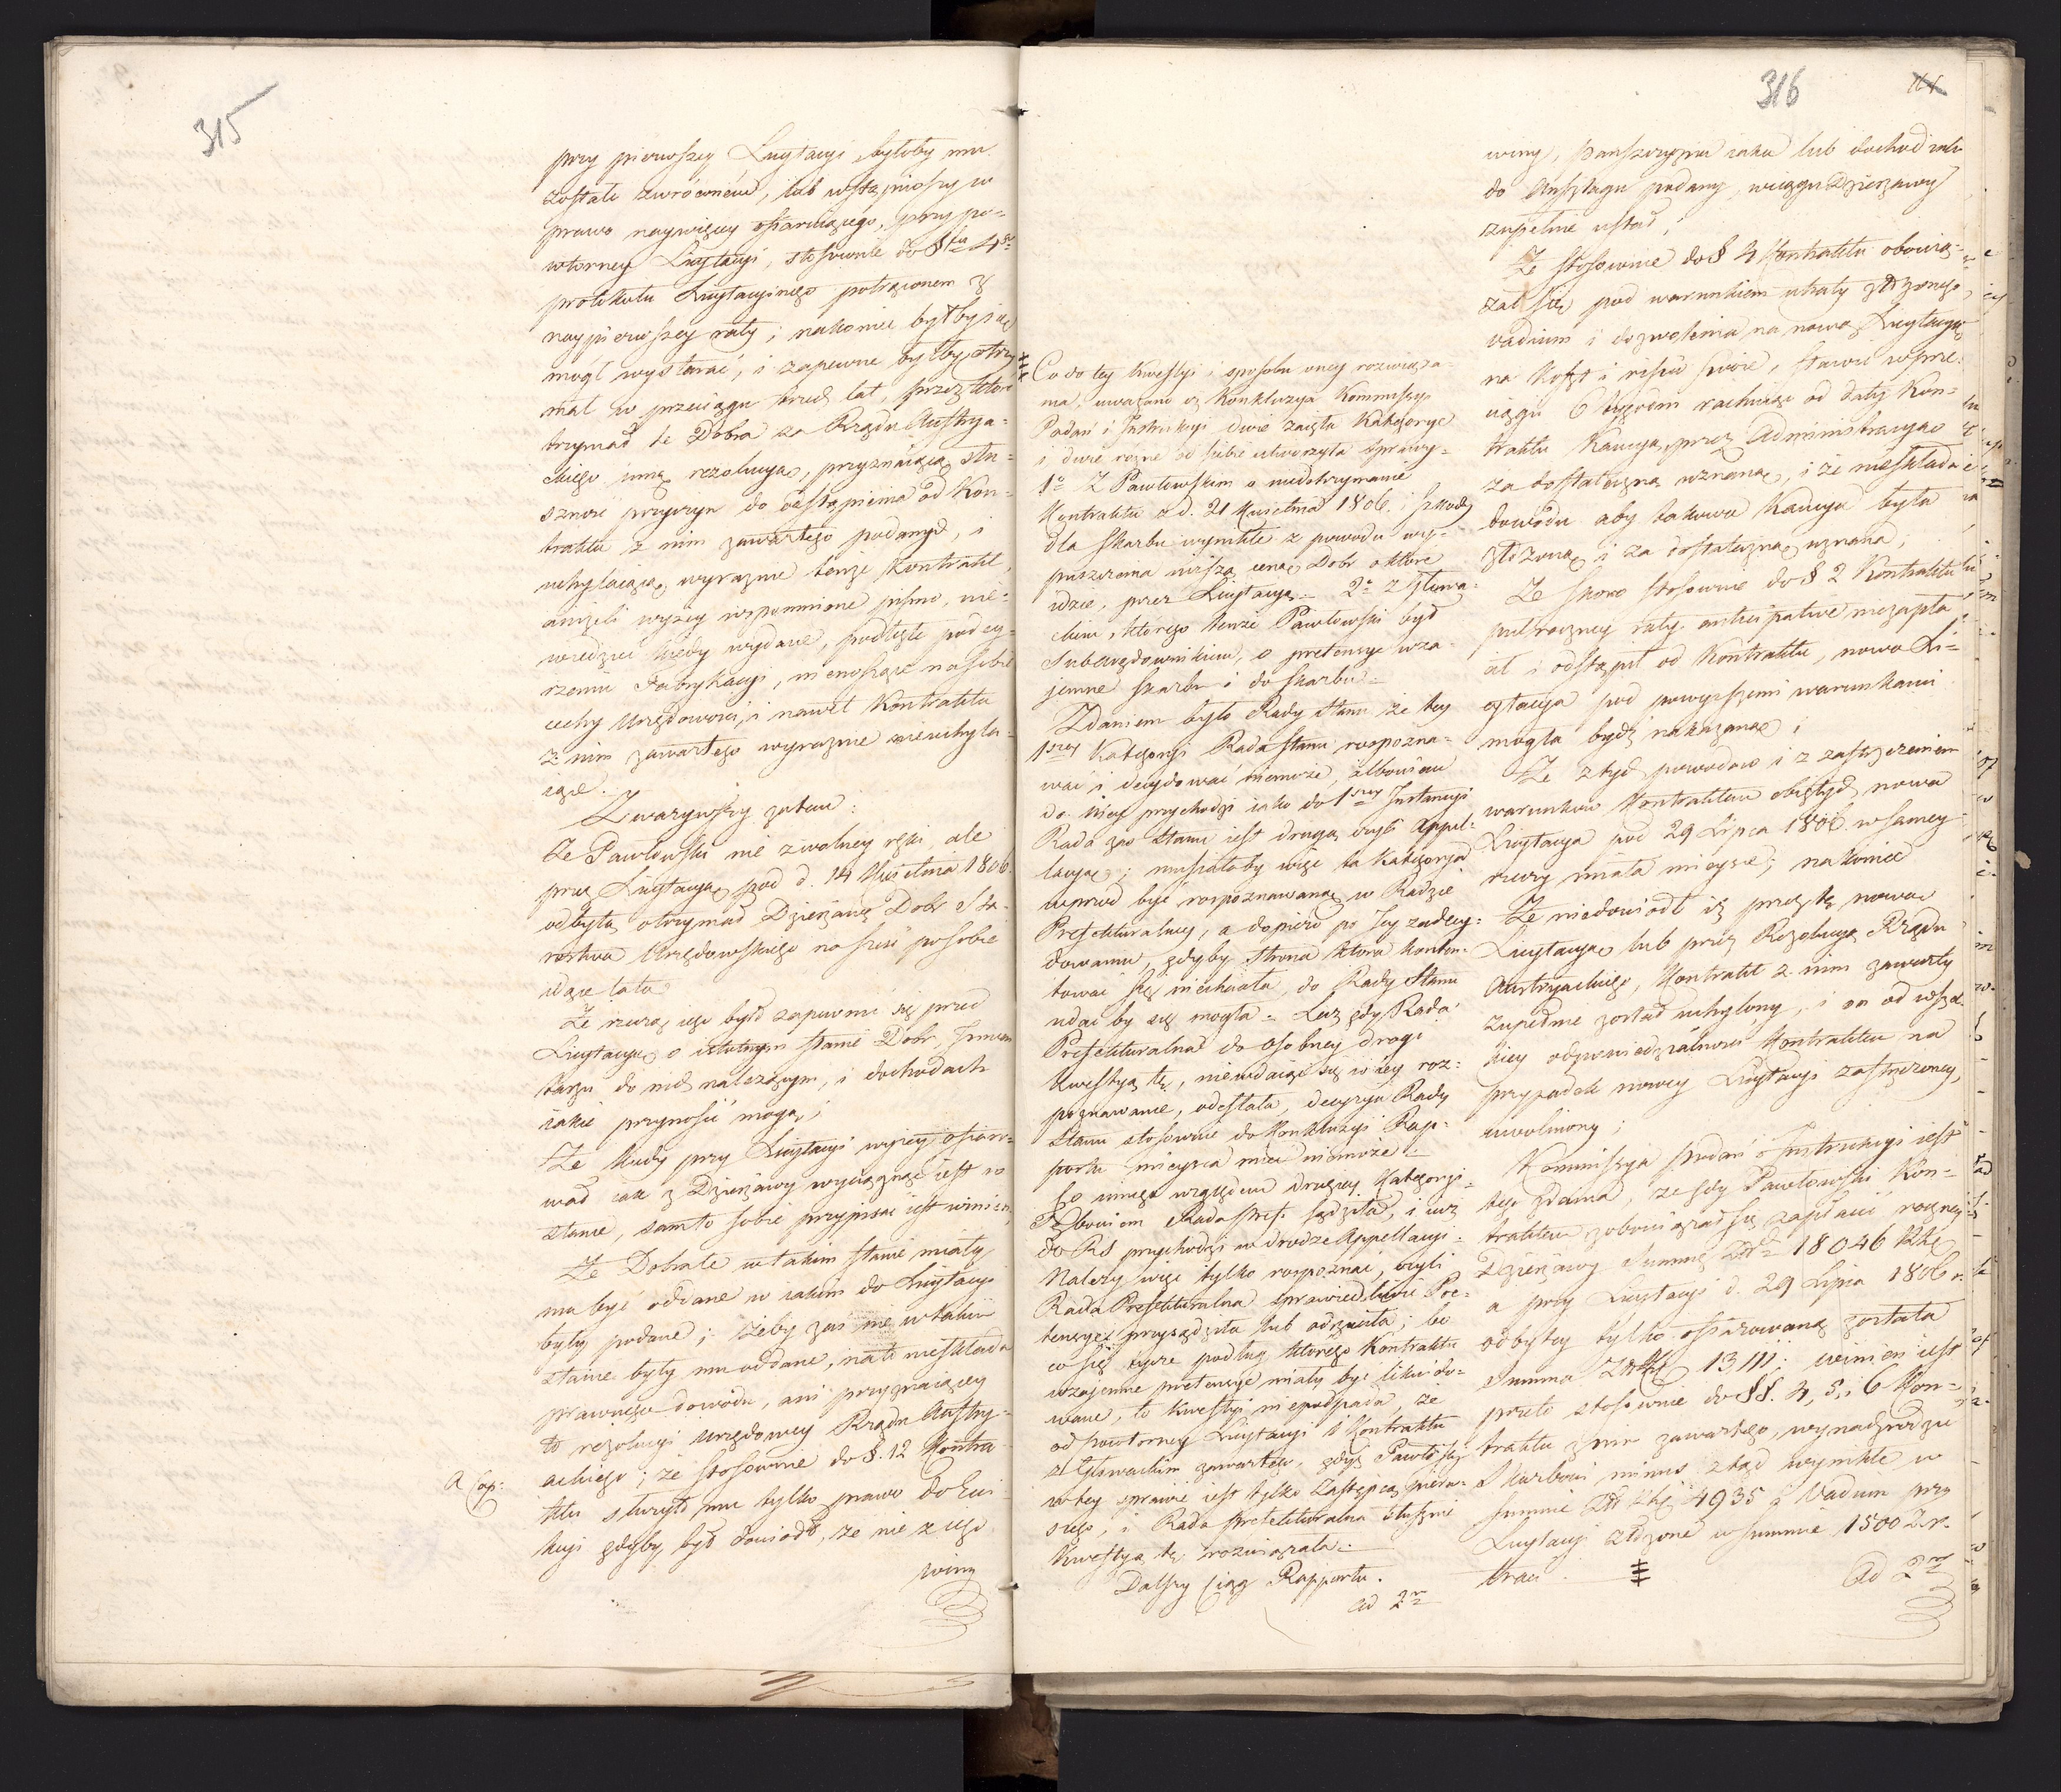 315
przy pierwszey Licytacyi byłoby mu
zostało zwróconém, lub wstąpiwszy w
prawo naywięcey ofiaruiącego, przy po=
wtorney Licytacyi, stosownie do §fu 4go
protokułu Licytacyinego potrąconem z
naypierwszey raty; nakoniec byłby się
mógł wystarać, i zapewne byłby otrzy
mał w przeciągu trzech lat, przez które
trzymał te Dobra za Rządu Austrya=
ckiego inną rezolucyą, przyznaiącą słu=
szność przyczyn do odstąpienia od Kon=
traktu z nim zawartego podanych, i
uchylaiącą wyraznie tenże Kontrakt,
aniżeli wyżey wspomnione pismo, nie=
wiedzieć kiedy wydane, podległe podey=
rzeniu Fabrykacyi, nienoszące na sobie
cechy Urzędowości, i nawet Kontraktu
z nim zawartego wyraznie nieuchyla=
iące.
Zważywszy zatem:
Że Pawłowski nie z wolney ręki, ale
przez Licytacyą pod d. 14 Kwietnia 1806.
odbytą otrzymał Dzierżawę Dobr Sta=
rostwa Urzędowskiego na sześć po sobie
idące lata
Że rzeczą iego było zapewnić się przed
Licytacyą o istotnym stanie Dobr, Inwen
tarzu do nich należącym, i dochodach
iakie przynosić mogą;
Że kiedy przy Licytacyi więcey ofiaro=
wał iak z Dzierżawy wyciągnąć iest w
stanie, sam to sobie przypisać iest winien,
Że Dobra te w takim stanie miały
mu być oddane w iakim do Licytacyi
były podane; żeby zaś nie w takim
stanie były mu oddane, na to nieskłada
prawnego dowodu, ani przyznaiącey
to rezolucyi Urzędowey Rządu Austry=
ackiego; że stosownie do §. 12 Kontra
ktu służyło mu tylko prawo do Ewi
kcyi gdyby był dowiódł, że nie z iego
winy
316
Co do tey kwestyi i sposobu oney rozwiąza=
nia, uważano iż Konkluzya Kommissyi
Podań i Instrukcyi dwie zaięła Kategorye
i dwie rożne od siebie utworzyła sprawy=
1o Z Pawłowskim o niedotrzymanie
Kontraktu z d. 21 Kwietnia 1806. i szkody
dla Skarbu wynikłe z powodu wy=
puszczenia niższą ceną Dobr o które
idzie, przez Licytacyą. 2o z Głowa=
ckim, ktorego tenże Pawłowski był
Subarędownikiem, o pretensye wza=
jemne Skarbu i do Skarbu.=
Zdaniem było Rady Stanu że tey
1szey Kategoryi Rada Stanu rozpozna=
wać i decydować niemoże, albowiem
do niey przychodzi iako do 1szey Instancyi
Rada zaś Stanu iest drugą czyli Appel=
lacyą; musiałaby więc ta Kategorya
wprzod być rozpoznawaną w Radzie
Prefekturalney, a dopiero po Jey zadecy=
dowaniu, gdyby Strona ktora konten=
tować się niechciała, do Rady Stanu
udać by się mogła.= Lecz gdy Rada
Prefekturalna do osobney drogi
kwestyą tę, niewdaiąc się w iey roz=
poznawanie, odesłała, decyzya Rady
Stanu stosownie do Konkluzyi Rap=
portu mieysca mieć niemoże.=
Co innego względem drugiey Kategoryi.
Tę bowiem Rada Pref. sądziła, i iuż
do RS przychodzi w drodze Appellacyi.
Należy więc tylko rozpoznać, czyli
Rada Prefekturalna sprawiedliwie Pre=
tensye przysądziła lub odrzuciła; bo
co się tycze podług którego Kontraktu
wzajemne pretensye miały być likwido=
wane, to kwestyi niepodpada, że
od powtorney Licytacyi i Kontraktu
z Głowackim zawartego, gdyż Pawłowski
w tey sprawie iest tylko Zastępcą pierw=
szego, i Rada Prefekturalna słusznie
kwestyą tę rozwiązała.=
Dalszy Ciąg Rapportu.
ad 2m
winy, pańszczyzna iaka lub dochod iaki
do Anszlagu podany, w ciągu Dzierżawy
zupełnie ustał;
Że stosownie do § 4 Kontraktu obowią=
zał się pod warunkiem utraty złożonego
vadium i dozwolenia na nową Licytacyą
na koszt i risico swoie, stawić w prze=
ciągu 6 tygodni rachuiąc od daty Kon=
traktu Kaucyą, przez Administracyą
za dostateczną uznaną, i że nieskłada
dowodu aby takowa Kaucya była
złożoną i za dostateczną uznaną;
Że skoro stosownie do § 2 Kontraktu
pułroczney raty anticipative niezapła
cił i odstąpił od Kontraktu, nowa Li=
cytacya pod powyższemi warunkami
mogła bydź nakazaną;
Że z tych powodow i z zastrzeżeniem
warunkow Kontraktem obiętych nowa
Licytacya pod 29 Lipca 1806. w samey
rzeczy miała mieysce; nakoniec
Że niedowiodł iż przez tę nową
Licytacyą lub przez Rezolucyą Rządu
Austryackiego, Kontrakt z nim zawarty
zupełnie został uchylony, i on od wszel=
kiey odpowiedzialności Kontraktem na
przypadek nowey Licytacyi zastrzeżoney,
uwolniony;
Kommissya Podań i Instrukcyi iest
tego zdania, że gdy Pawłowski Kon=
traktem zobowiązał się zapłacić roczney
Dzierżawy Summę 18046
a przy Licytacyi d. 29 Lipca 1806 r.
odbytey tylko ofiarowaną została
Summa 13111; winien iest
przeto stosownie do §§. 4, 5, i 6 Kon=
traktu z nim zawartego, wynadgrodzić
Skarbowi minus ztąd wynikłe w
Summie 4935 i Vadium przy
Licytacyi złożone w summie 1500 Zr.
traci.
Ad 2m